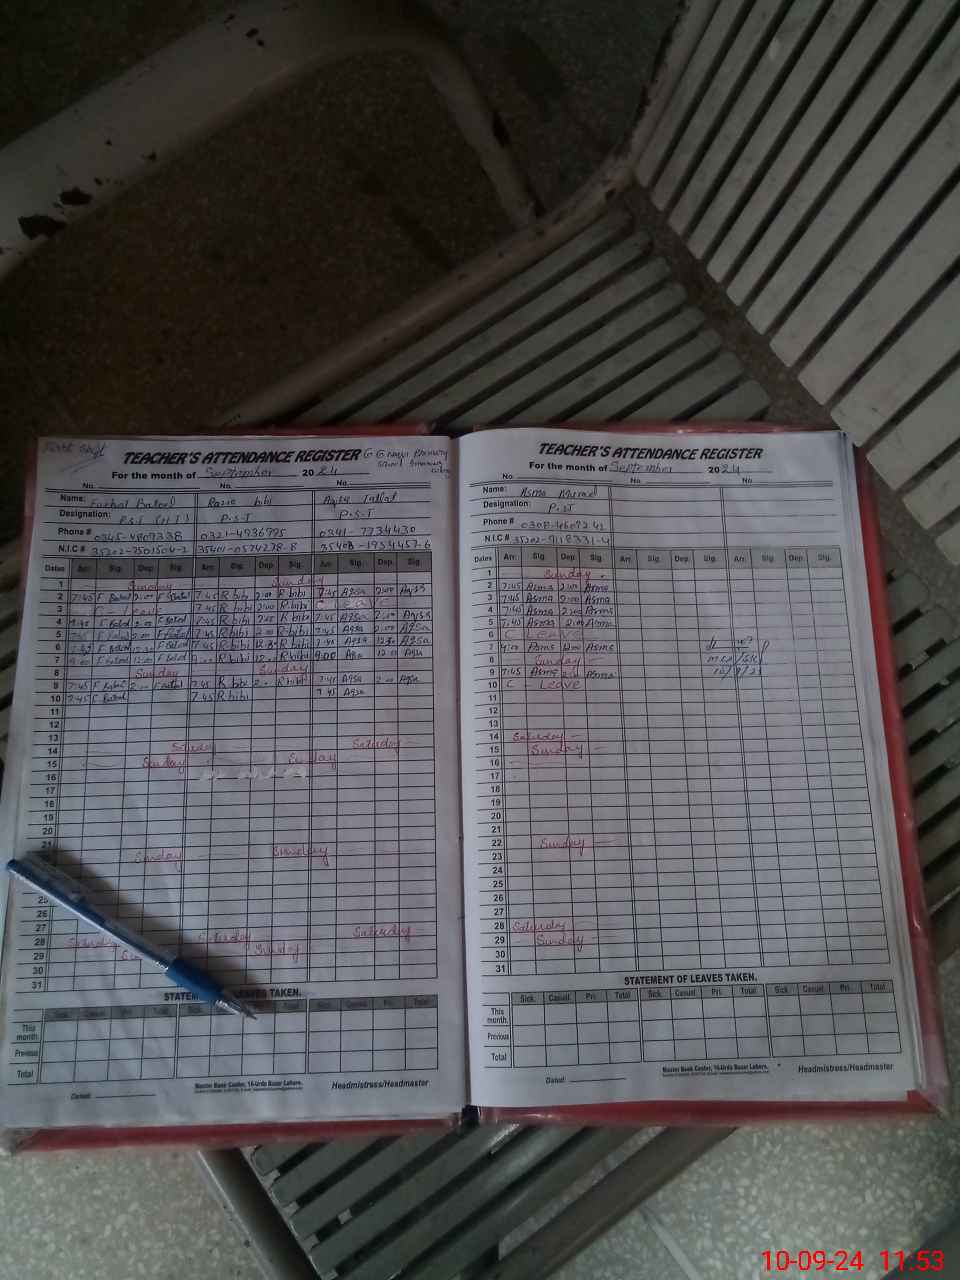 First Shift
TEACHER'S ATTENDANCE REGISTER
For the month of September 2024
No. No. No.
Name: Farhat Batool Razia bibi Aqsa Tallat
Designation: P.S.T (H.T) P.S.T P.S.T
Phone # 0321-4936795 0341-7734430
N.I.C #
Dates Arr. Sig. Dep. Sig. Arr. Sig. Dep. Sig. Arr. Sig. Dep. Sig.
1 Sunday Sunday
2 7:45 F Batool 2:00 F Batool 7:45 R bibi 2:00 R bibi 7:45 Aqsa 2:00 Aqsa
3 C - Leave 7:45 R bibi 2:00 R bibi C Leave
4 7:45 F Batool 2:00 F Batool 7:45 R bibi 2:00 R bibi 7:45 Aqsa 2:00 Aqsa
5 7:45 F Batool 2:00 F Batool 7:45 R bibi 2:00 R bibi 7:45 Aqsa 2:00 Aqsa
6 7:45 F Batool 12:30 F Batool 7:45 R bibi 12:30 R bibi 7:45 Aqsa 12:30 Aqsa
7 9:00 F Batool 12:00 F Batool 9:00 R bibi 12:00 R bibi 9:00 Aqsa 12:00 Aqsa
8 Sunday Sunday
9 7:45 F Batool 2:00 F Batool 7:45 R bibi 2:00 R bibi 7:45 Aqsa 2:00 Aqsa
10 7:45 F Batool 7:45 R bibi 7:45 Aqsa
11
12
13
14 Saturday Saturday
15 Sunday Sunday
16
17
18
19
20
21
Sunday Sunday
23
24
25
26
27
28 Saturday Saturday Saturday
29 Sunday
30
31
LEAVES TAKEN.
Sick. Casual. Pri. Total Sick. Casual. Pri. Total Sick. Casual. Pri. Total
This month.
Previous
Total
Dated:
Master Book Center, 16-Urdu Bazar Lahore.
Headmistress/Headmaster
TEACHER'S ATTENDANCE REGISTER
For the month of September 2024
No. No. No.
Name: Asma Murad
Designation: P.S.T
Phone #
N.I.C # 35202-9118331-4
Dates Arr. Sig. Dep. Sig. Arr. Sig. Dep. Sig. Arr. Sig. Dep. Sig.
1 Sunday
2 7:45 Asma 2:00 Asma
3 7:45 Asma 2:00 Asma
4 7:40 Asma 2:00 Asma
5 7:40 Asma 2:00 Asma
6 C Leave
7 9:00 Asma 12:00 Asma
8 Sunday
9 7:45 Asma 2:00 Asma
10 C - Leave
11
12
13
14 Saturday
15 Sunday
16
17
18
19
20
21
22 Sunday
23
24
25
26
27
28 Saturday
29 Sunday
30
31
STATEMENT OF LEAVES TAKEN.
Sick. Casual. Pri. Total Sick. Casual. Pri. Total Sick. Casual. Pri. Total
This month.
Previous
Total
Dated:
Master Book Center, 16-Urdu Bazar Lahore.
Headmistress/Headmaster
10-09-24 11:53